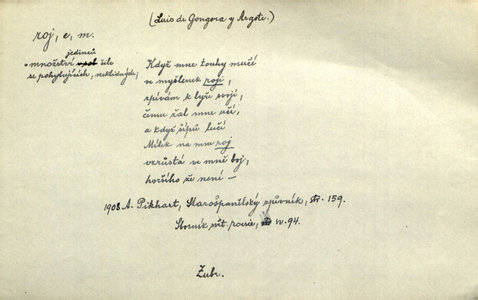 (Luis de Gongora y Argote.)
roj, e, m.
jedinců
množství čile
se pohybujících, neklidných;
Když mne touhy mučé
ve myšlenek roji,
zpívám k lyře svojí,
čemu žal mne učí,
a když šípů lučí
Milek na mne roj
vzrůstá ve mně boj,
horšího že není —
1908 A. Pikhart, Starošpanělský zpěvník, str. 159.
Sborník svět. poesie, sv. 94.
Zubr.